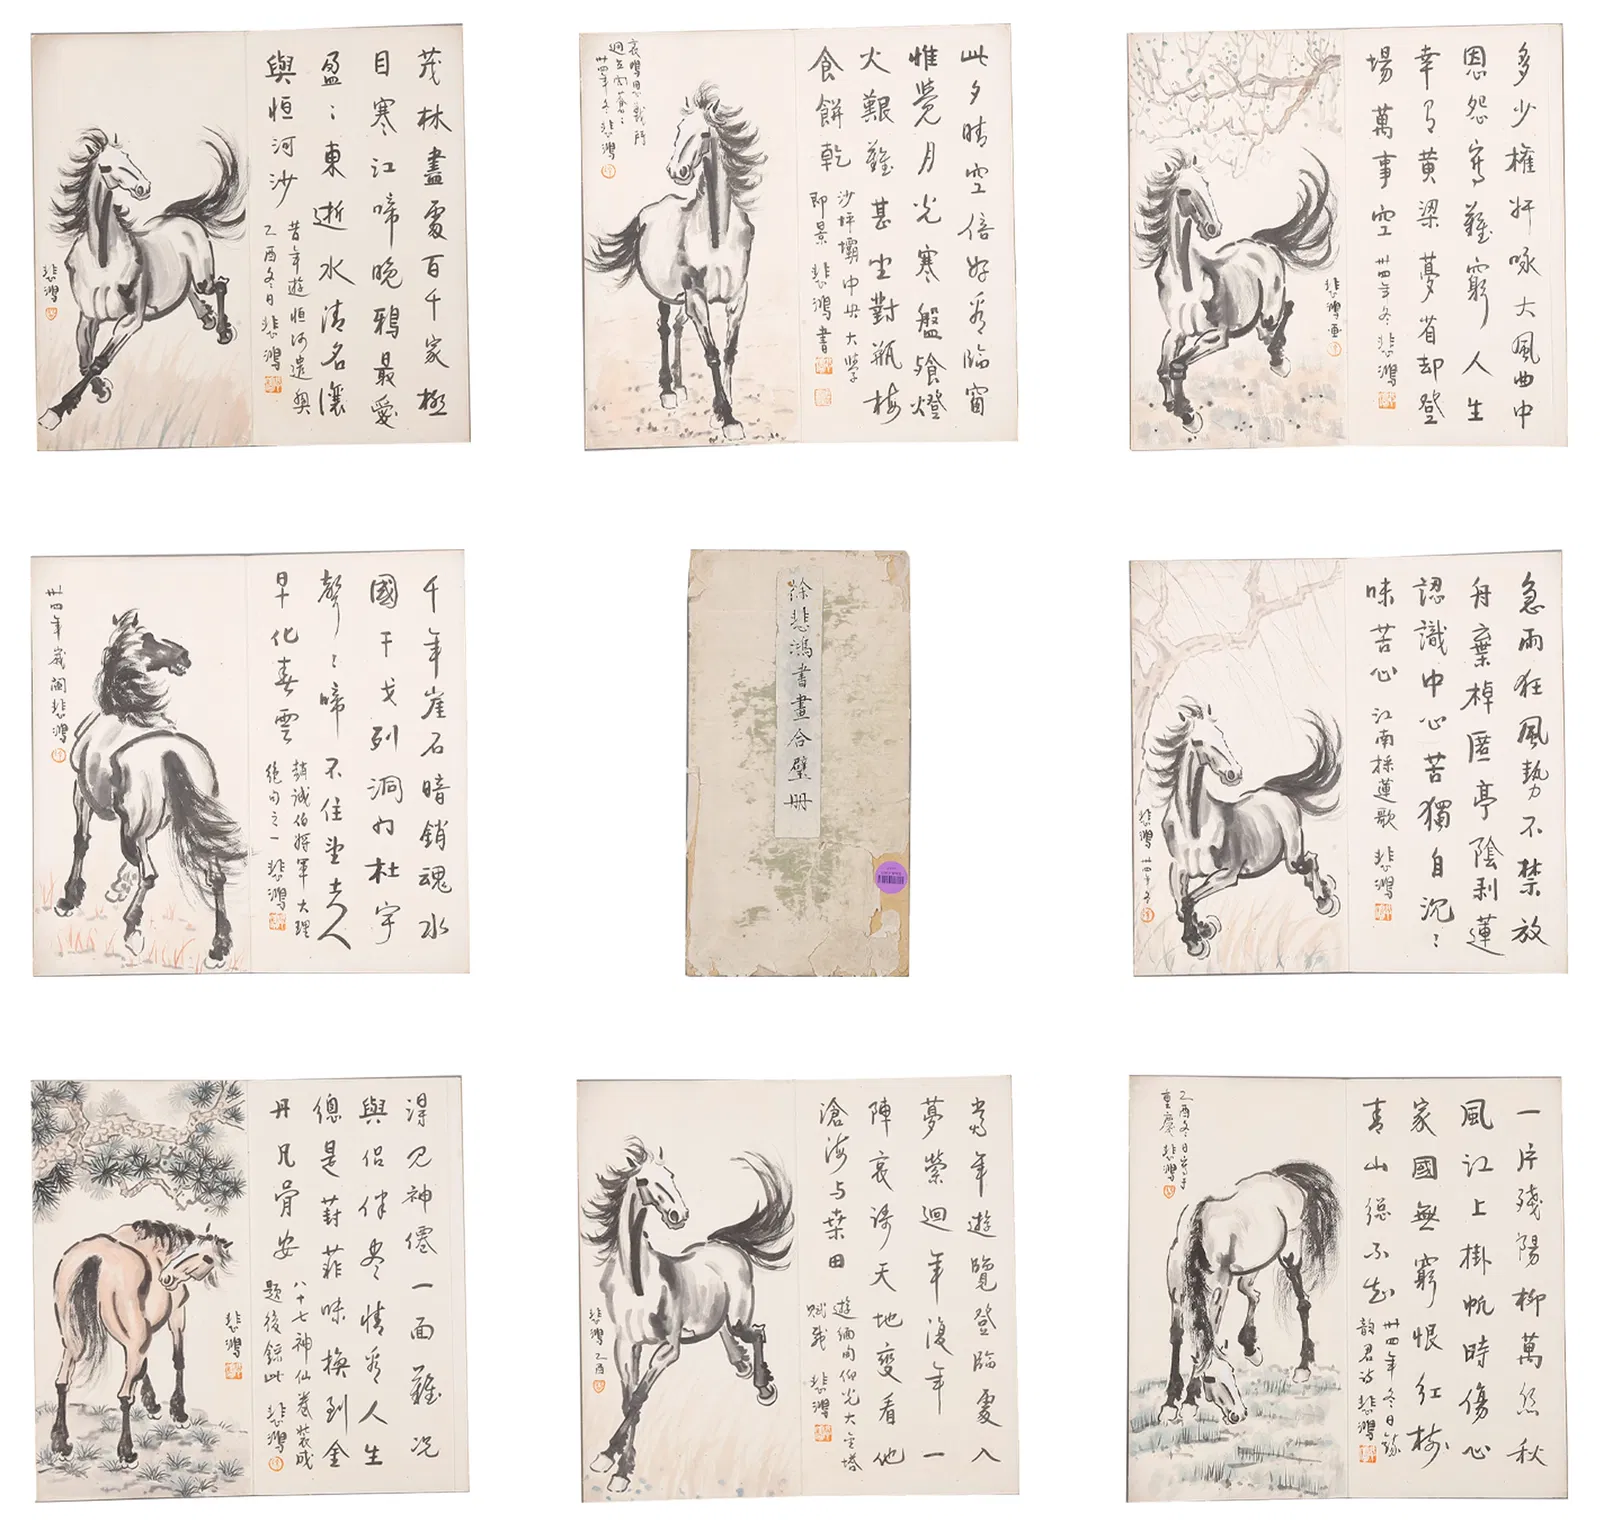 茂林盡處百千家極
目寒江啼晚鴉最愛
盈〻東逝水清名讓
與恒河沙
昔年遊恒河遣興
乙酉冬日悲鴻
悲鴻
哀鳴思戰鬥
迥立向蒼〻
卅四年冬悲鴻
此夕晴空倍好看臨窗
惟覺月光寒盤飱燈
火艱難甚坐對瓶梅
食餅乾
沙坪壩中央大學
即景 悲鴻書
多少權奸咏大風曲中
恩怨寫難窮人生
幸有黃粱夢省却登
場萬事空
卅四年冬悲鴻
悲鴻畫
卅四年歲闌悲鴻
千年崖石暗銷魂水
國干戈列洞門杜宇
聲〻啼不住望夫人
早化春雲
趙誠伯將軍大理
絕句之一 悲鴻
徐悲鴻書畫合璧冊
急雨狂風勢不禁放
舟棄棹匿亭陰剥蓮
認識中心苦獨自沉〻
味苦心
江南採蓮歌 悲鴻
悲鴻 卅四年
得見神僊一面難況
與侣伴盡情看人生
總是葑菲味換到金
丹凡骨安
八十七神仙卷裝成
題後錄此 悲鴻
悲鴻
當年遊覽登臨處入
夢縈迴年復年一
陣哀湯天地變看他
滄海與桑田
遊緬甸仰光大金塔
賦我 悲鴻
悲鴻乙酉
乙酉冬日寫于
重慶 悲鴻
一片殘陽柳萬絲秋
風江上掛帆時傷心
家國無窮恨紅樹
青山總不知
卅四年冬日錄
韵君詩 悲鴻